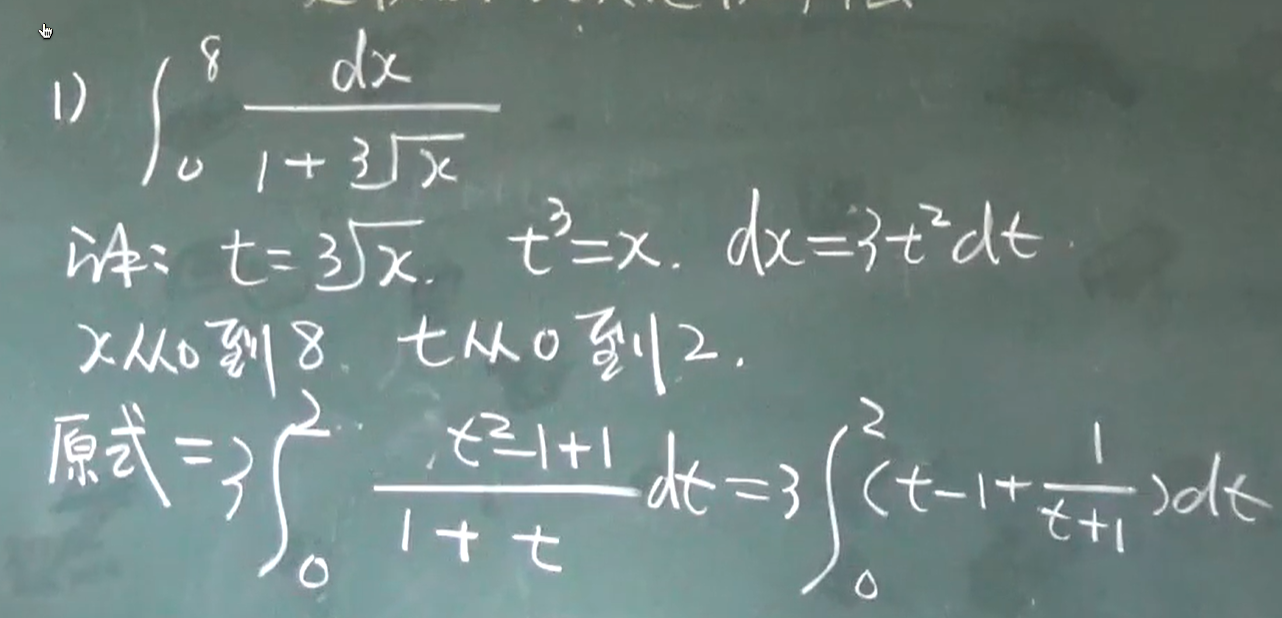 1) ∫₀⁸ dx / (1 + ³√x)
解: t = ³√x. t³ = x. dx = 3t²dt.
x从0到8. t从0到2.
原式 = 3∫₀² (t²-1+1)/(1+t) dt = 3∫₀² (t-1+1/(t+1))dt